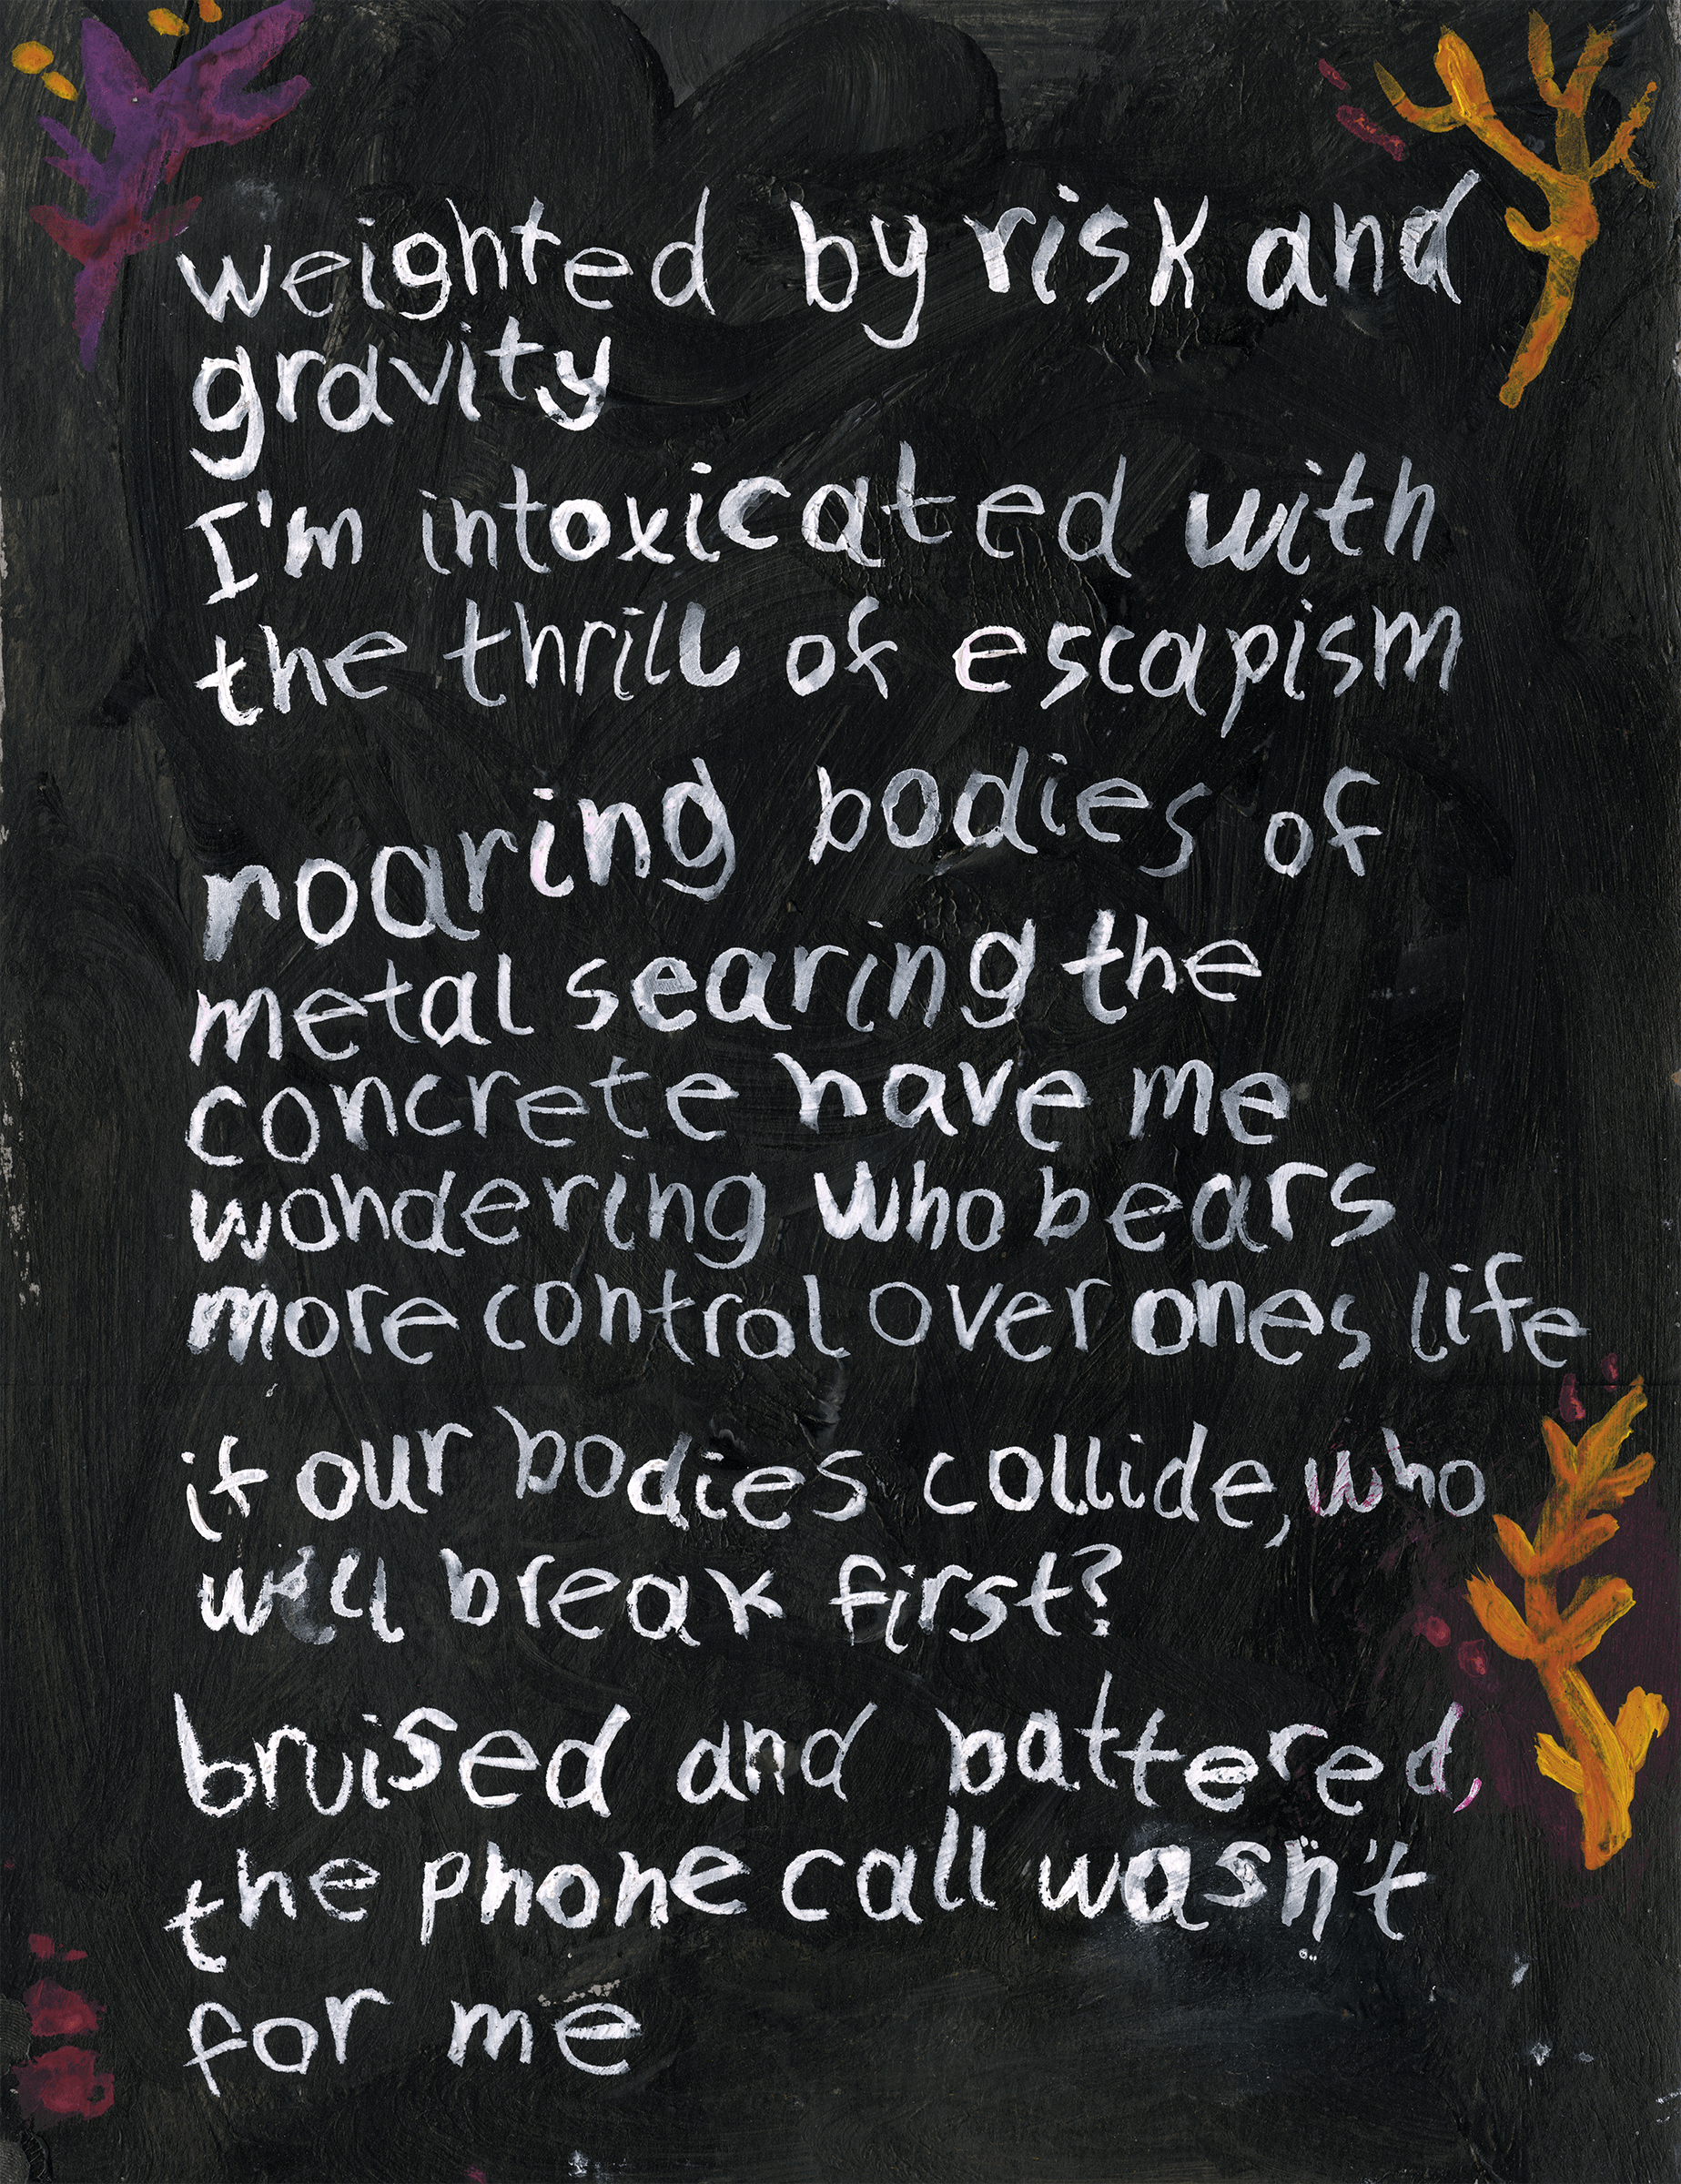 weighted by risk and
gravity
I'm intoxicated with
the thrill of escapism
roaring bodies of
metal searing the
concrete have me
wondering who bears
more control over ones life
if our bodies collide, who
will break first?
bruised and battered,
the phone call wasn't
for me